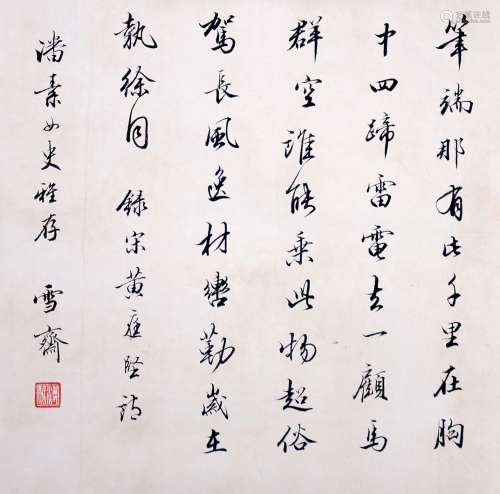 筆端那有此千里在胸
中四蹄雷電去一顧馬
群空誰能乘此物超俗
駕長風逸材轡勒歲在
執徐同 錄宋黃庭堅詩
潘素女史雅存 雪齋